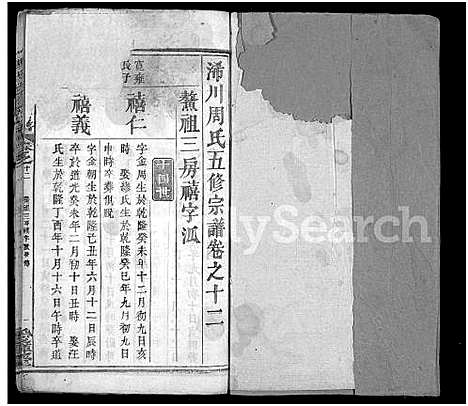 浠川周氏五修宗譜卷之十二
鰲祖三房禧字派
寬雍
長子
禧仁
字金周生於乾隆癸未年十二月初九日亥
時 娶繆氏生於乾隆癸巳年九月初九日
申時卒葬俱睨
禧義
字金朝生於乾隆己丑年六月十二日辰時
卒於道光癸未年二月初十日丑時 娶汪
氏生於乾隆丁酉年十月十六日午時卒道
FamilySearch